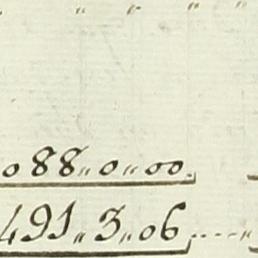 " " " "
088"0"00.
491"3"06....."